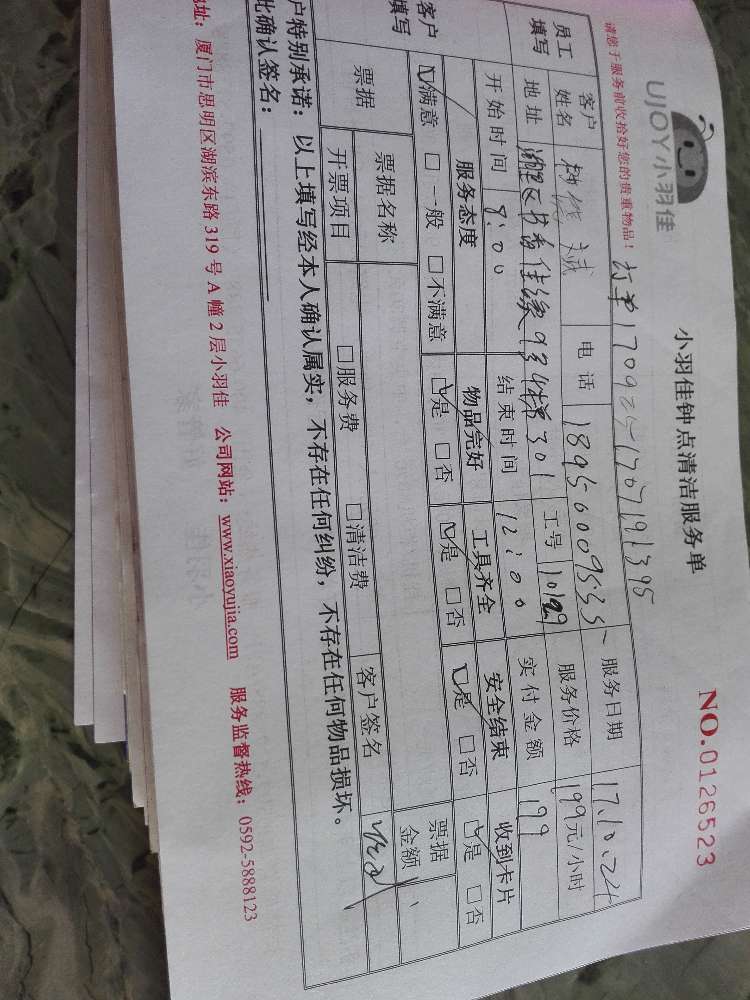 UJOY小羽佳
小羽佳钟点清洁服务单
NO.0126523
请您于服务前收拾好您的贵重物品！
员工填写
客户姓名
电话 18956009535
服务日期 17.10.24
地址
工号 10199
服务价格 199元/小时
开始时间 9:00 结束时间 12:00 实付金额 199
客户填写
服务态度 物品完好 工具齐全 安全结束 收到卡片
☑满意 □一般 □不满意 ☑是 □否 ☑是 □否 ☑是 □否 ☑是 □否
票据 票据名称 票据金额
开票项目 □服务费 □清洁费 客户签名
户特别承诺：以上填写经本人确认属实，不存在任何纠纷，不存在任何物品损坏。
此确认签名：
地址：厦门市思明区湖滨东路319号A幢2层小羽佳 公司网站：www.xiaoyujia.com 服务监督热线：0592-5888123